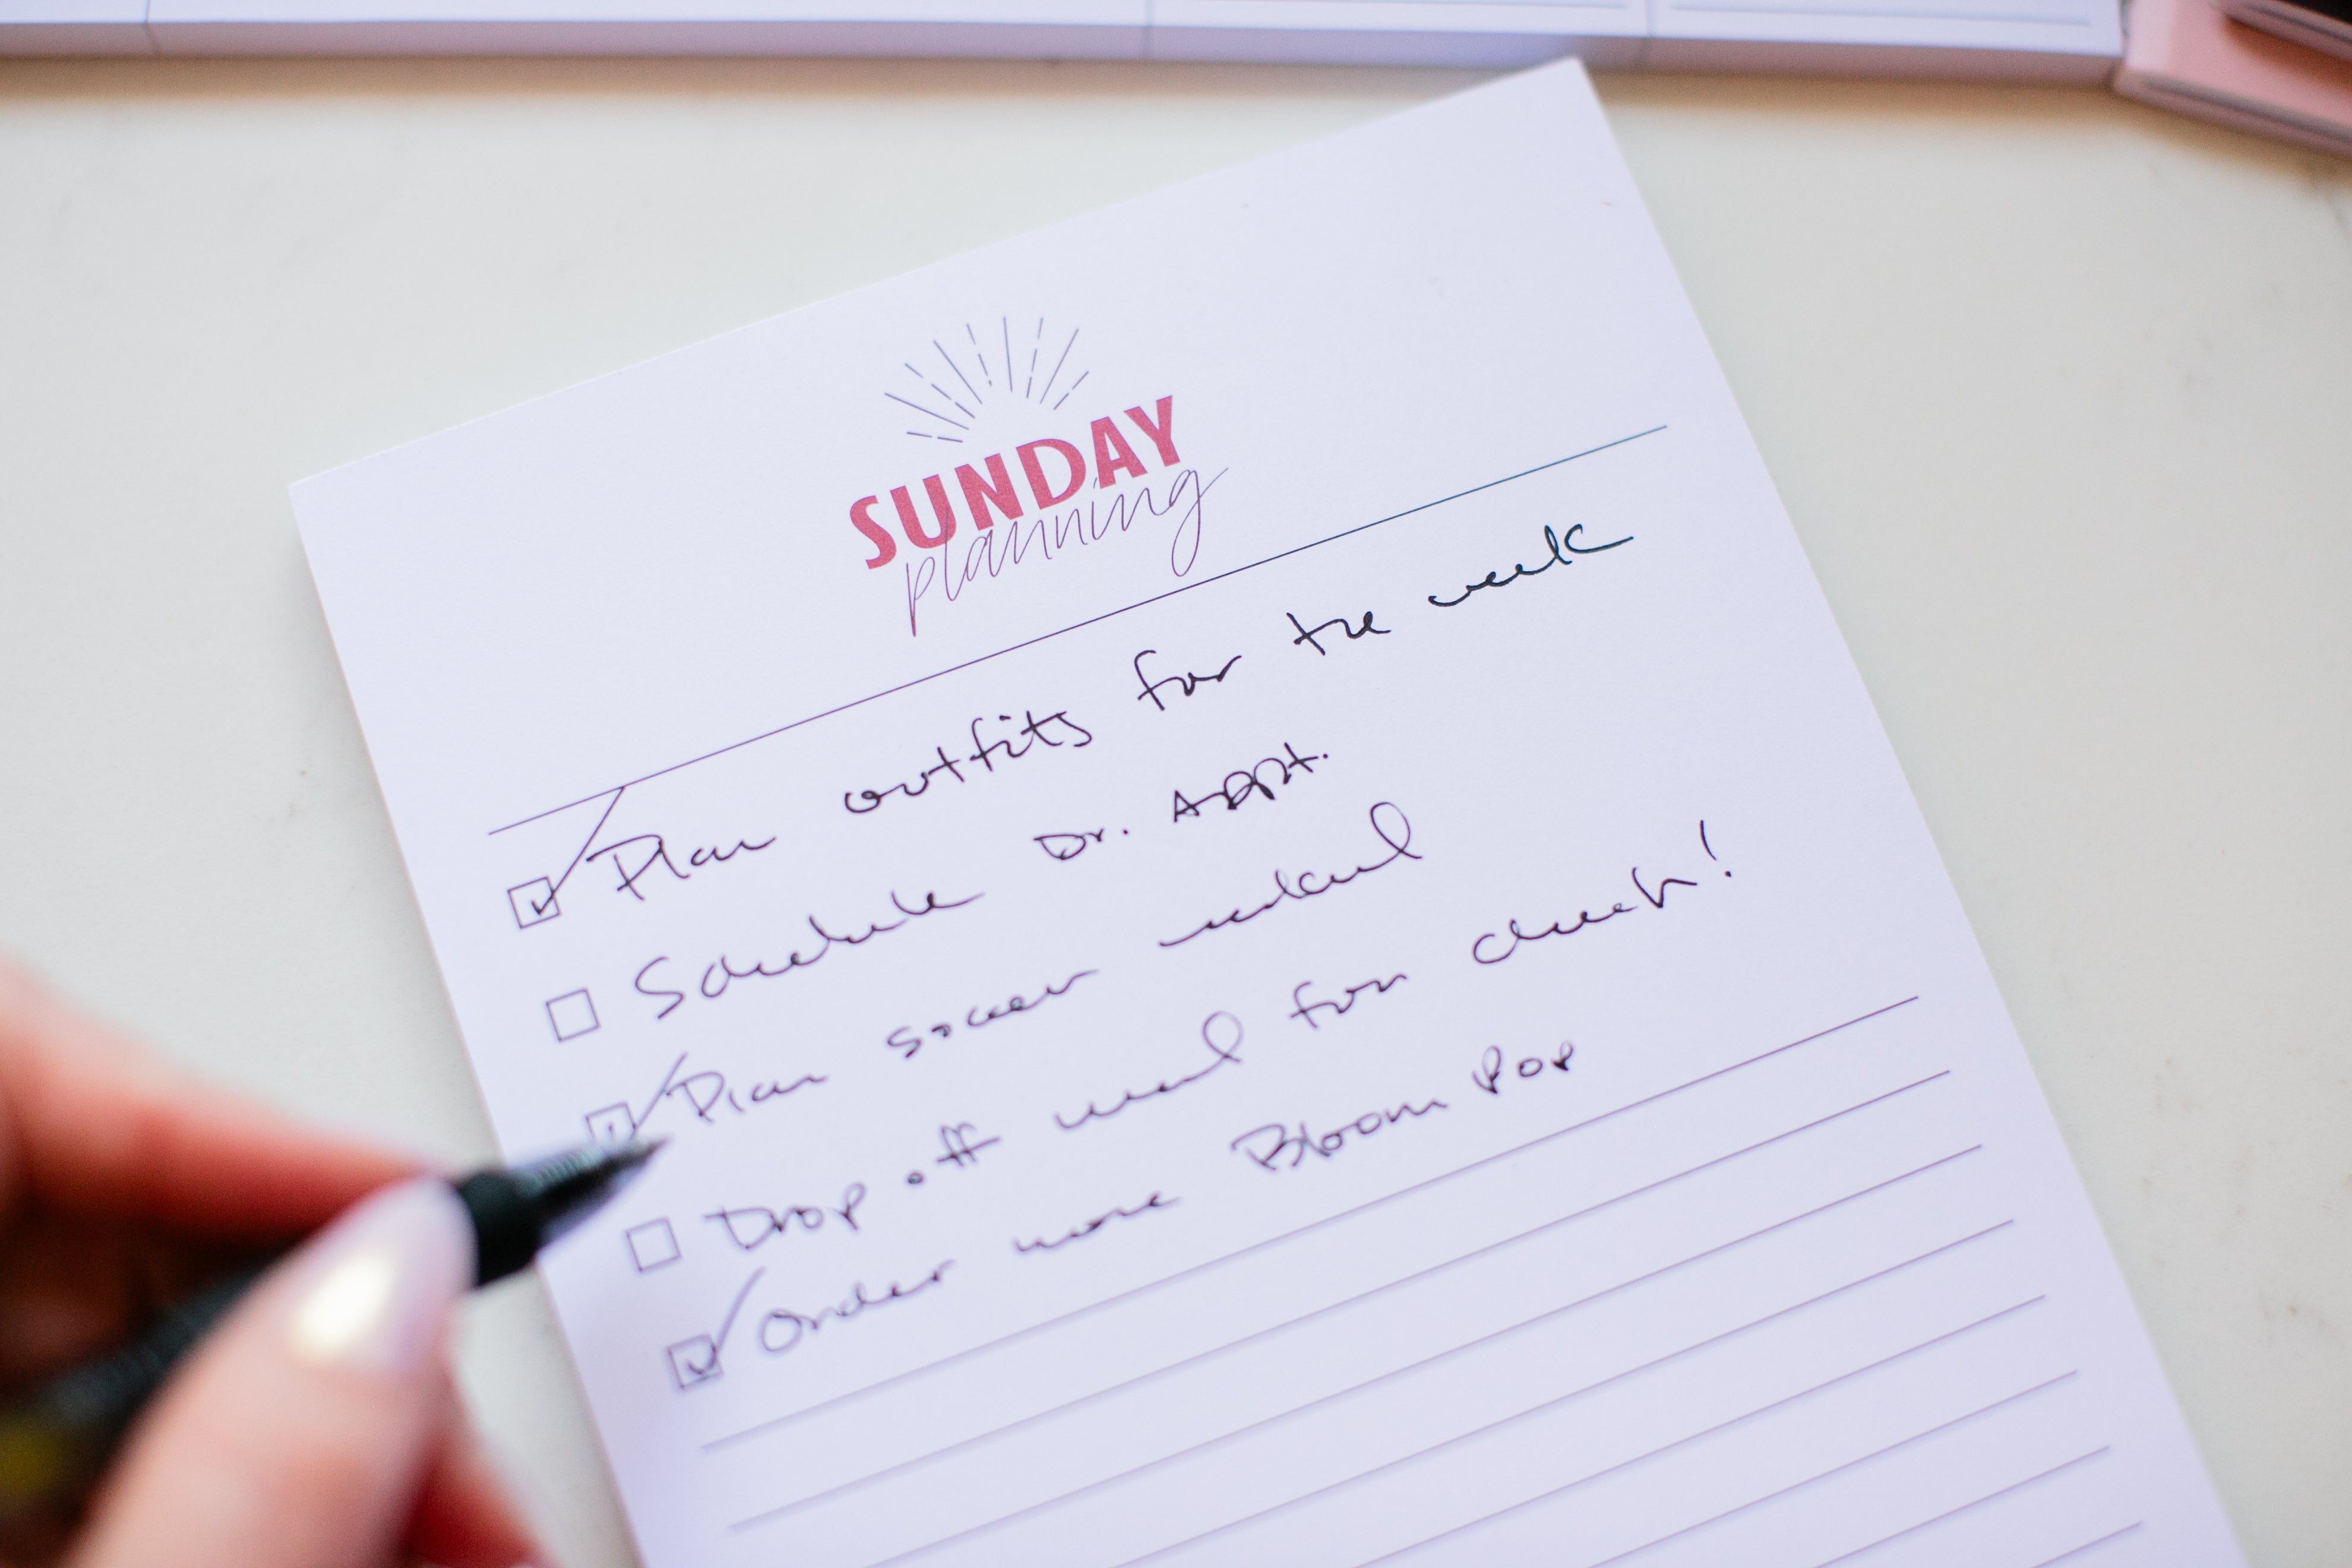 SUNDAY
planning
Plan outfits for the week
Schedule Dr. Appt.
Plan soccer weekend
Drop off meal for church!
Order more Bloom Pop